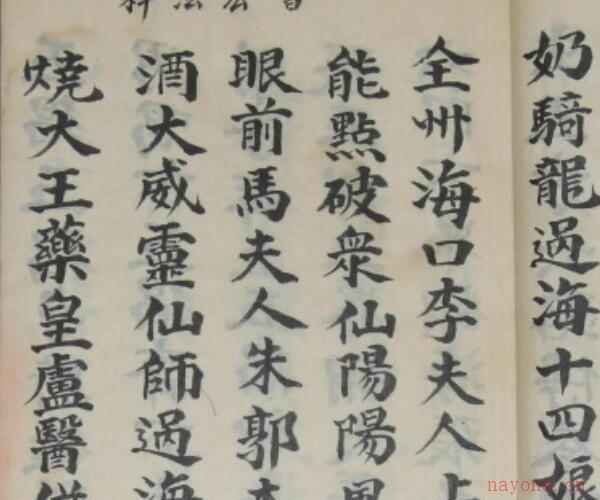 奶騎龍過海十四娘
全州海口李夫人
能點破衆仙陽陽
眼前馬夫人朱郭
酒大威靈仙師過海
燒大王藥皇盧醫
nayona.cn